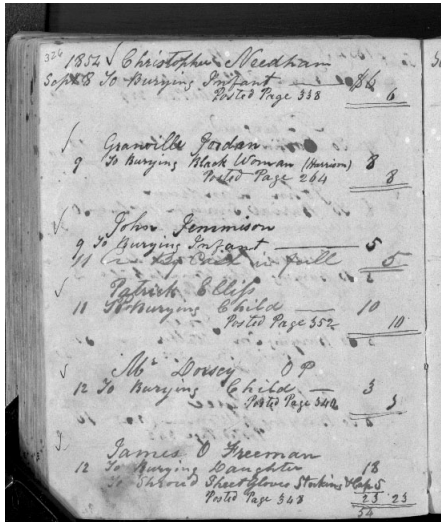 324
1854 √ Christopher Needham
Sept 8 To Burying Infant $6
Posted Page 338 6
Granville Jordan
9 To Burying Black Woman (Harrison) 8
Posted Page 264 8
√ John Jemmison
9 To Burying Infant 5
11 By Cash in full 5
√ Patrick Elliss
11 To Burying Child 10
Posted Page 352 10
√ Mr Dorsey O P
12 To Burying Child 3
Posted Page 340 3
James O Freeman
12 To Burying Daughter 18
To Shroud Sheet Gloves Stockins & Cap 5
Posted Page 348 23 23
54